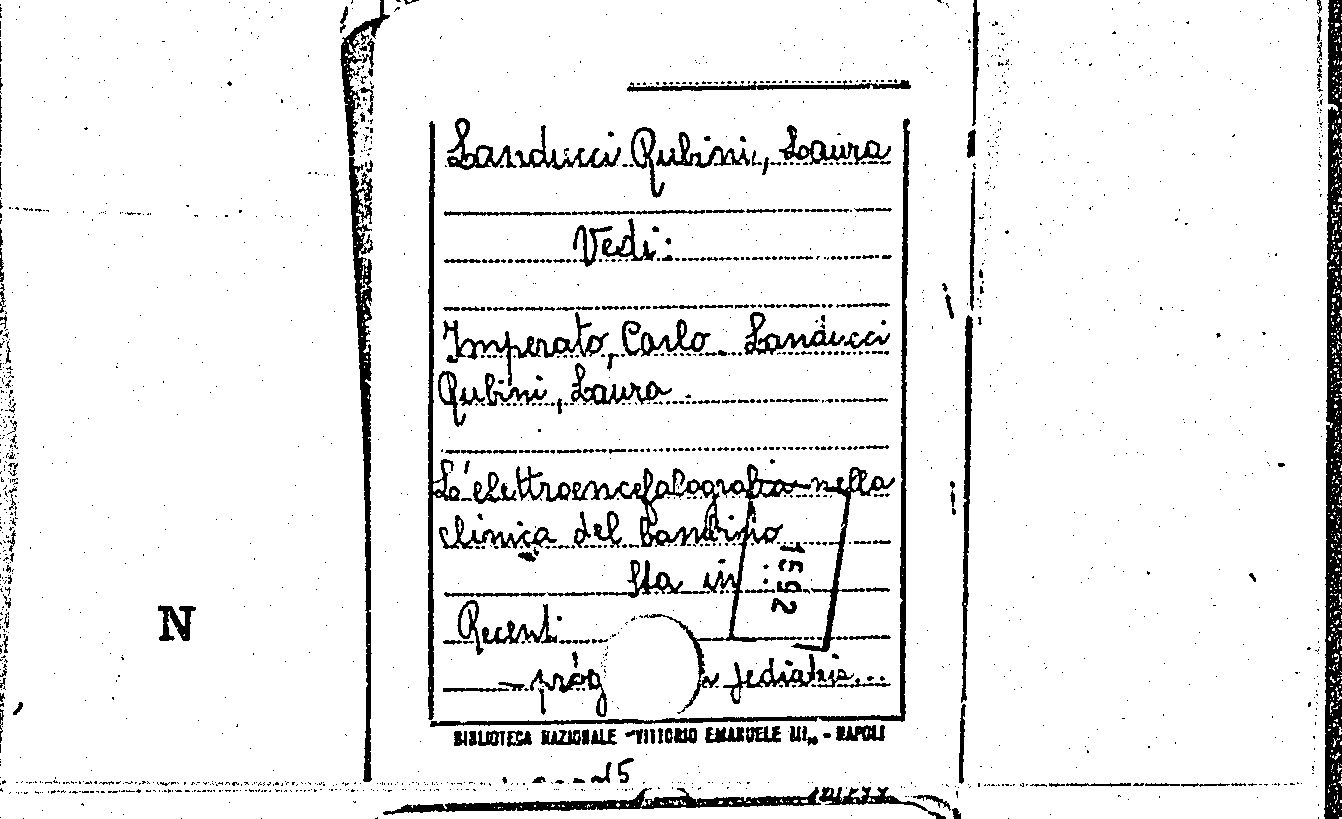 Landucci Rubini, Laura
Vedi:
Imperato, Carlo. Landucci
Rubini, Laura.
L'elettroencefalografia nella
clinica del bambino
Sta in:
1592
Recenti
- prog pediatria...
N
BIBLIOTECA NAZIONALE "VITTORIO EMANUELE III„ - NAPOLI